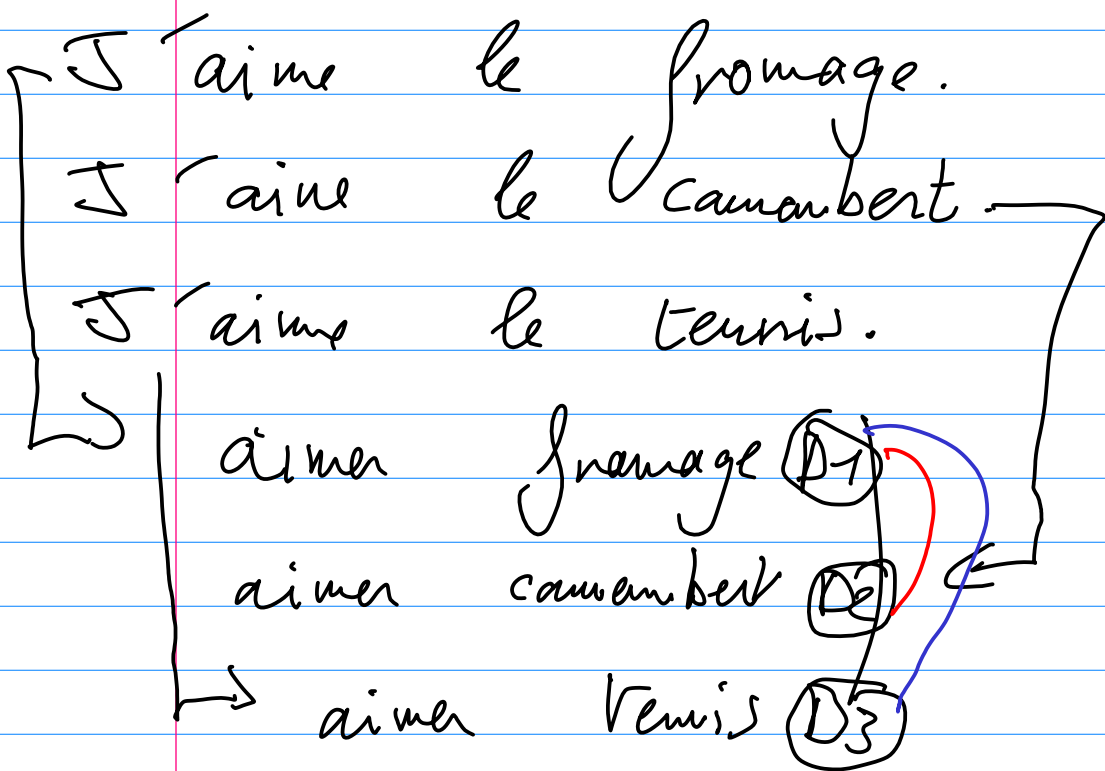 J'aime le fromage.
J'aime le camembert.
J'aime le tennis.
aimer fromage D1
aimer camembert D2
aimer tennis D3